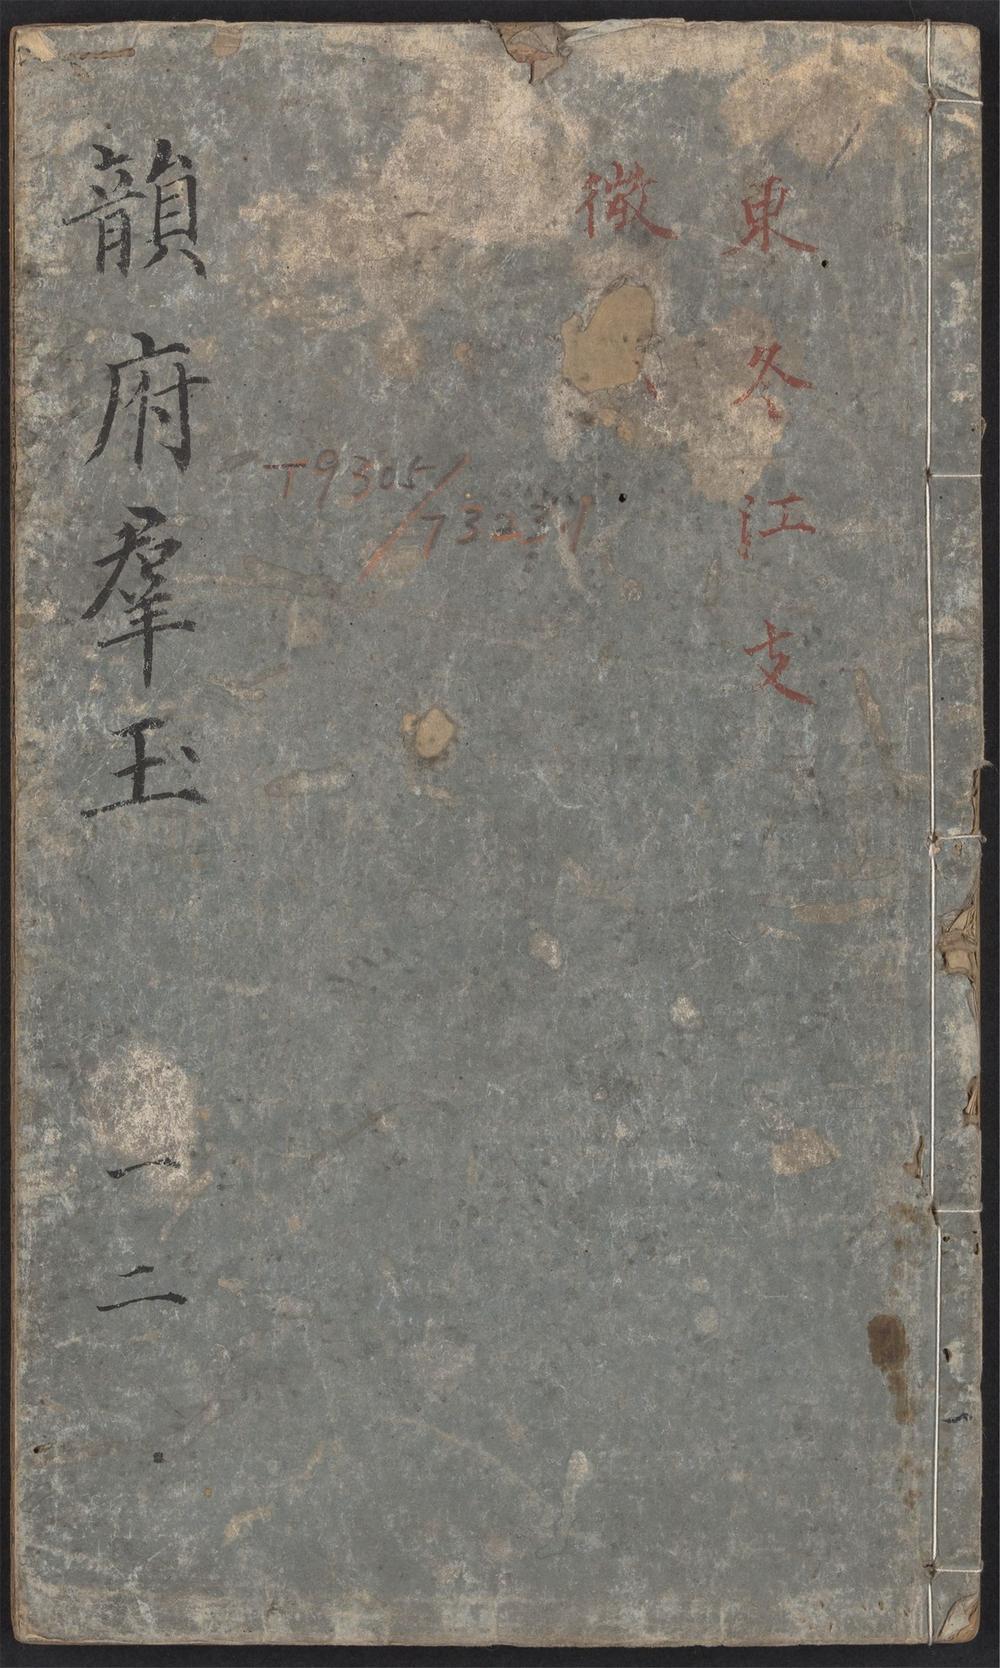 東冬江支
微
T9305/7323.1
韻府羣玉 一二